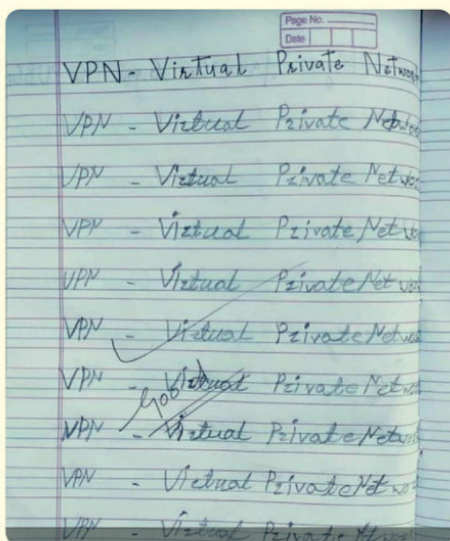 Page No.
Date
VPN - Virtual Private Network
VPN - Virtual Private Network
VPN - Virtual Private Netwo
VPN - Virtual Private Netwo
VPN - Virtual Private Netwo
VPN - Virtual Private Netwo
VPN - Virtual Private Netwo
Good
VPN - Virtual Private Netwo
VPN - Virtual Private Netwo
VPN - Virtual Private